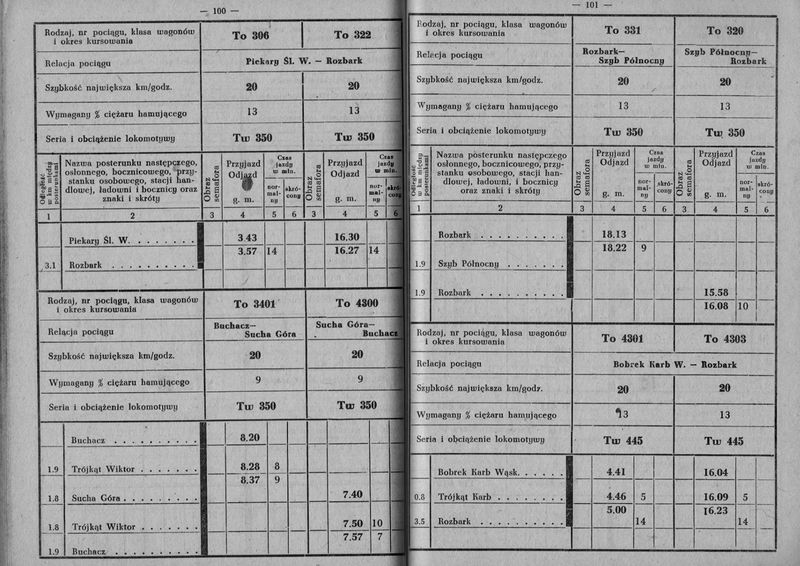 — 100 —
Rodzaj, nr pociągu, klasa wagonów
i okres kursowania
To 306
To 322
Relacja pociągu
Piekary Śl. W. — Rozbark
Szybkość największa km/godz.
20
20
Wymagany % ciężaru hamującego
13
13
Seria i obciążenie lokomotywy
Tw 350
Tw 350
Odległość
w km między
posterunkami
Nazwa posterunku następczego,
osłonnego, bocznicowego, przy-
stanku osobowego, stacji han-
dlowej, ładowni i bocznicy oraz
znaki i skróty
Obraz
semafora
Przyjazd
Odjazd
g. m.
Czas
jazdy
w min.
nor-
mal-
ny
skró-
cony
Obraz
semafora
Przyjazd
Odjazd
g. m.
Czas
jazdy
w min.
nor-
mal-
ny
skró-
cony
1 2 3 4 5 6 3 4 5 6
Piekary Śl. W. . . . . . . . 3.43 16.30
3.57 14 16.27 14
3.1 Rozbark . . . . . . . . . .
Rodzaj, nr pociągu, klasa wagonów
i okres kursowania
To 3401
To 4300
Relacja pociągu
Buchacz—
Sucha Góra
Sucha Góra—
Buchacz
Szybkość największa km/godz.
20
20
Wymagany % ciężaru hamującego
9
9
Seria i obciążenie lokomotywy
Tw 350
Tw 350
Buchacz . . . . . . . . . . 8.20
1.9 Trójkąt Wiktor . . . . . . . 8.28 8
8.37 9
1.8 Sucha Góra . . . . . . . . . 7.40
1.8 Trójkąt Wiktor . . . . . . . 7.50 10
7.57 7
1.9 Buchacz . . . . . . . . . .
— 101 —
Rodzaj, nr pociągu, klasa wagonów
i okres kursowania
To 331
To 320
Relacja pociągu
Rozbark—
Szyb Północny
Szyb Północny—
Rozbark
Szybkość największa km/godz.
20
20
Wymagany % ciężaru hamującego
13
13
Seria i obciążenie lokomotywy
Tw 350
Tw 350
Odległość
w km między
posterunkami
Nazwa posterunku następczego
osłonnego, bocznicowego, przy-
stanku osobowego, stacji han-
dlowej, ładowni, i bocznicy
oraz znaki i skróty
Obraz
semafora
Przyjazd
Odjazd
g. m.
Czas
jazdy
w min.
nor-
mal-
ny
skró-
cony
Obraz
semafora
Przyjazd
Odjazd
g. m.
Czas
jazdy
w min.
nor-
mal-
ny
skró-
cony
1 2 3 4 5 6 3 4 5 6
Rozbark . . . . . . . . . . 18.13
18.22 9
1.9 Szyb Północny . . . . . . .
1.9 Rozbark . . . . . . . . . . 15.58
16.08 10
Rodzaj, nr pociągu, klasa wagonów
i okres kursowania
To 4301
To 4303
Relacja pociągu
Bobrek Karb W. — Rozbark
Szybkość największa km/godz.
20
20
Wymagany % ciężaru hamującego
13
13
Seria i obciążenie lokomotywy
Tw 445
Tw 445
Bobrek Karb Wąsk. . . . . . 4.41 16.04
0.8 Trójkąt Karb . . . . . . . . 4.46 5 16.09 5
5.00 16.23
3.5 Rozbark . . . . . . . . . . 14 14